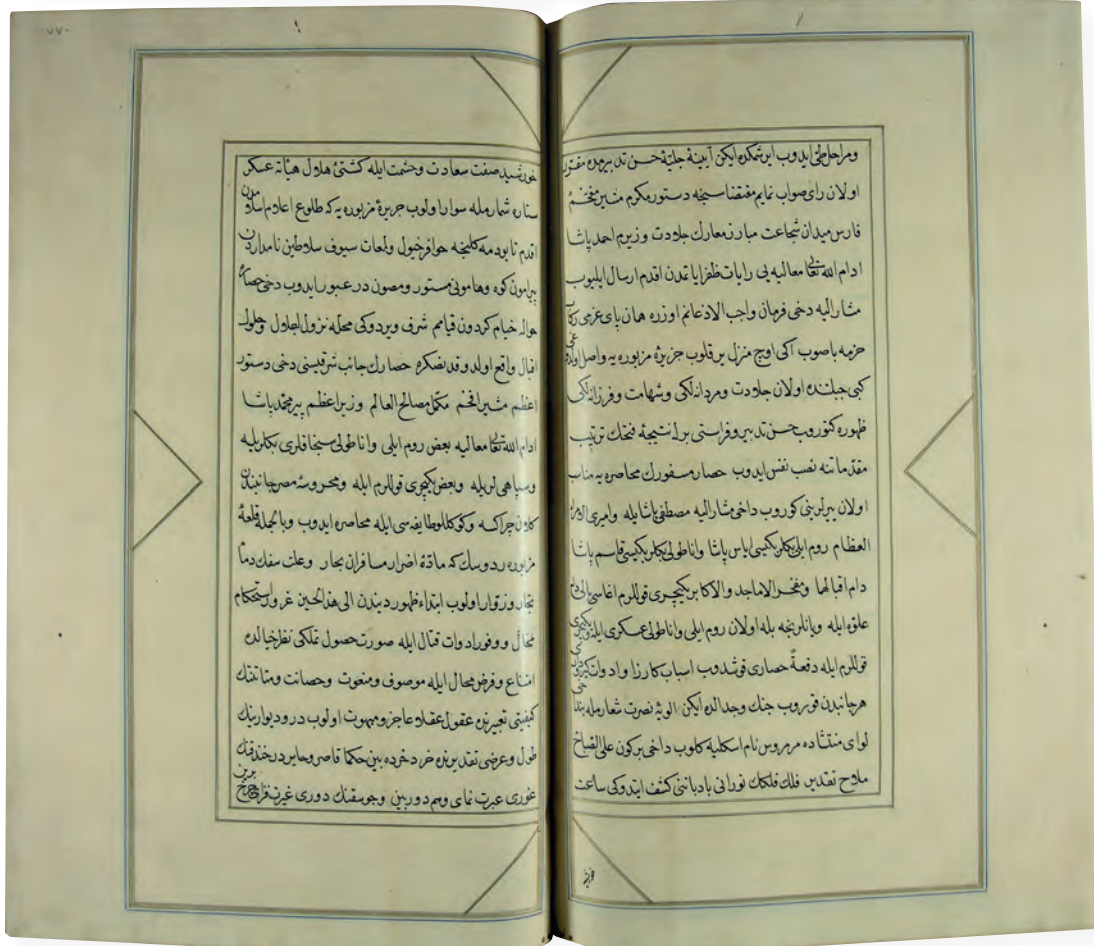 ومراحل طی ایدوب ایرشمکده ایکن آیینهٔ جلیهٔ حسن تدبیرمده مقرر
اولان رای صواب نمایم مقتضاسنجه دستور مکرم مشیر مفخم
فارس میدان شجاعت مبارز معارك جلادت وزیرم احمد پاشا
ادام الله تعالی معالیه یی رایات ظفرایاتمدن اقدم ارسال ایلیوب
مشارالیه دخی فرمان واجب الاذعانم اوزره همان پای عزمی رکاب
حزمه باصوب اکی اوچ منزل یر قلوب جزیرهٔ مزبوره یه واصل اولدوغی
کبی جبلتنده اولان جلادت ومردانه لکی وشهامت وفرزانه لکی
ظهوره کتوروب حسن تدبیر وفراستی برله نتیجهٔ فتحك ترتیب
مقدماتنه نصب نفس ایدوب حصار مسفورك محاصره یه مناسب
اولان یرلرینی کوروب داخی مشارالیه مصطفی پاشا یله وامری الامرا
العظام روم ایلی بکلربکیسی ایاس پاشا واناطولی بکلربکیسی قاسم پاشا
دام اقبالهما ومفخر الاماجد والاکابر یکیچری قوللرم اغاسی بالی دام
علوه ایله ویانلرنجه بله اولان روم ایلی واناطولی عسکری ایله ویکیچری
قوللرم ایله دفعةً حصاری قوشدوب اسباب کارزار وادوات کیروداری
هر جانبدن قوروب جنك وجدالده ایکن الویهٔ نصرت شعارمله بنداخی
لوای منتشاده مرمروس نام اسکلیه کلوب داخی برکون علی الصباح
ملاح تقدیر فلك فلکك نورانی بادباننی کشف ایتدوکی ساعت
خورشید
۷۷۰
خورشید صفت سعادت وحشمت ایله کشتیٔ هلال هیأته عسکر
ستاره شمارمله سوار اولوب جزیرهٔ مزبوره یه که طلوع اعلام اسلامدن
اقدم تا بو دمه کلینجه حوافر خیول ولمعات سیوف سلاطین نامداردن
پیرامون کوه وهامونی مستور ومصون در عبور ایدوب دخی حصاره
حواله خیام کردون قیامم شرف ویردوکی محله نزول اجلال وحلول
اقبال واقع اولدوقدنصکره حصارك جانب شرقیسنی دخی دستور
اعظم مشیر افخم مکمل مصالح العالم وزیر اعظم پیر محمد پاشا
ادام الله تعالی معالیه بعض روم ایلی واناطولی سنجاقلری بکلریله
وسپاهی لریله وبعض یکیچری قوللرم ایله ومحروسهٔ مصر جانبندن
کلان چراکسه وکوکللو طایفه سی ایله محاصره ایدوب وبالجمله قلعهٔ
مزبوره ردوسك که مادهٔ اضرار مسافران بحار وعلت سفك دمأ
تجار وزوار اولوب ابتداء ظهور دیندن الی هذالحین غرور استحکام
محال ووفور ادوات قتال ایله صورت حصول تملکی نظر خیالده
امتناع وفرض محال ایله موصوف ومنعوت وحصانت ومتانتنك
کیفیتی تعبیرنده عقول عقلا عاجز ومبهوت اولوب در ودیوارینك
طول وعرضی تقدیرنده خرد خرده بین حکما قاصر وحایر در خندقنك
غوری عبرت نمای وهم دوربین وجوسقنك دوری غیرت فزای چرخ برین